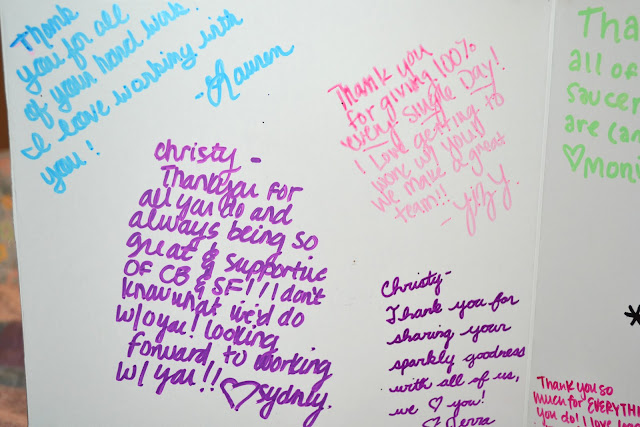 Thank
you for all
of your hard work.
I love working with
you!
-Lauren
Thank you
for giving 100%
every single Day!
I Love getting to
work w/ you!
We make a great
team!!
christy -
Thank you for
all you do and
always being so
great & supportive
OF CB & SF!! I don't
know what we'd do
w/o you! looking
forward to working
w/ you!! ♡ Sydney.
Christy-
Thank you for
sharing your
sparkly goodness
with all of us,
we ♡ you!
Tha
all of
saucer
are (an
♡Moni
Thank you so
much for EVERYTHI
you do! I love